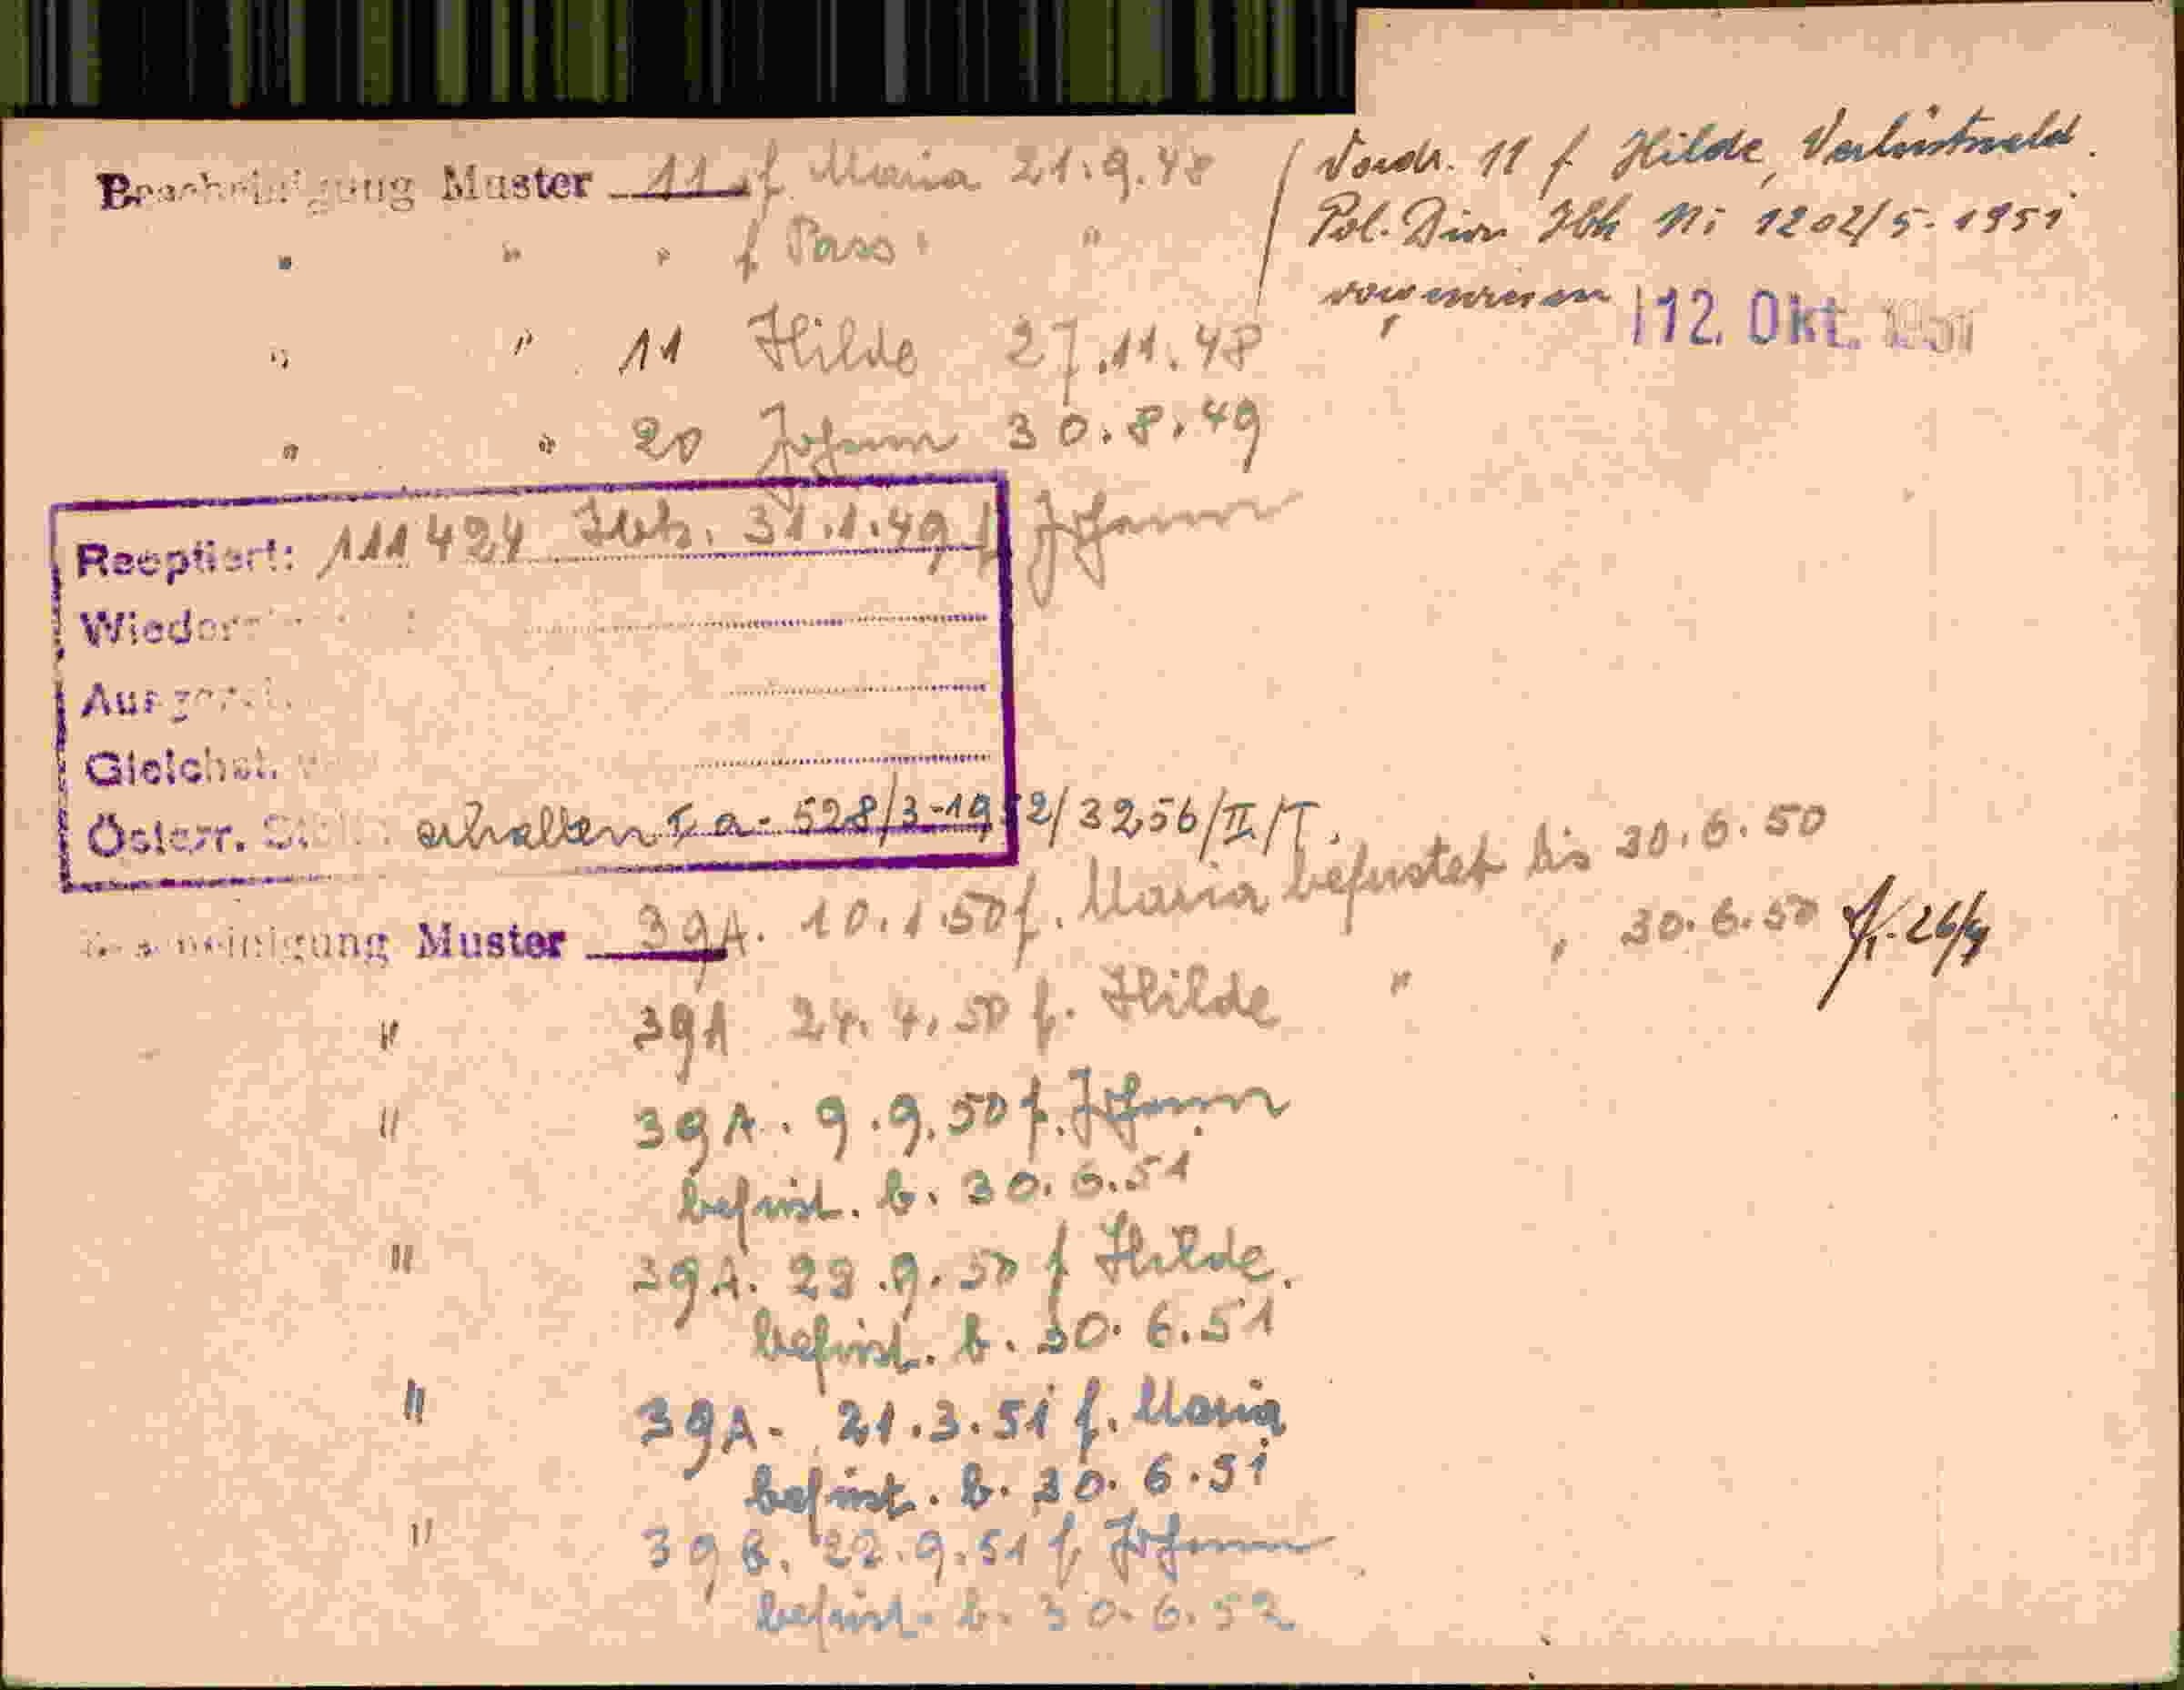 Bescheinigung Muster 11 f. Maria 21.9.48
" " " f. Pass "
" " 11 Hilde 27.11.48
" " 20 Johann 30.8.49
Vordr. 11 f Hilde, Verlustmeld.
Pol. Dion Ibk Ni 1202/5-1951
12. Okt. 1951
Reoptiert: 111424 Ibk. 31.1.49 f Johann
Österr. erhalten 528/3-1952/3256/II/T.
Bescheinigung Muster 39A. 10.1.50 f. Maria befristet bis 30.6.50
" 39A 24.4.50 f. Hilde " " 30.6.50
" 39A. 9.9.50 f. Johann
befrist. b. 30.6.51
" 39A. 29.9.50 f Hilde.
befrist. b. 30.6.51
" 39A. 21.3.51 f. Maria
befrist. b. 30.6.51
" 22.9.51 f. Johann
befrist. b. 30.6.52